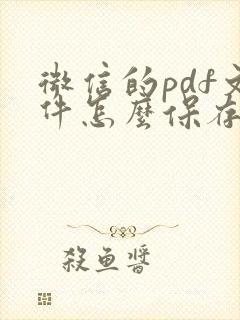 微信的pdf文
件怎麼保存
殺魚醬